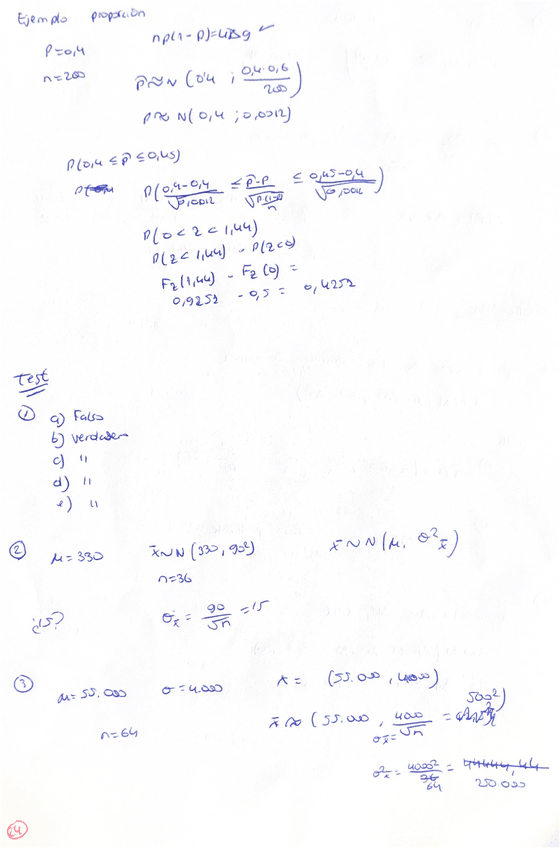 Ejemplo proporción
P=0,4
np(1-p)=48>9 ✓
n=200
p̂ ≈ N (0'4 ; 0,4·0,6/200)
p̂ ≈ N (0,4 ; 0,0012)
P(0,4 ≤ p̂ ≤ 0,45)
P( (0,4-0,4)/√0,0012 ≤ (p̂-p)/√(p(1-p)/n) ≤ (0,45-0,4)/√0,0012 )
P(0 < z < 1,44)
P(z < 1,44) - P(z<0)
Fz(1,44) - Fz(0) =
0,9252 - 0,5 = 0,4252
Test
① a) Falso
b) verdadero
c) "
d) "
e) "
② μ=330 x̄ ~ N (330, 90²) x̄ ~ N(μ, σ²x̄)
n=36
¿15? σx̄ = 90/√n = 15
③ μ=55.000 σ=4.000 x = (55.000, 4000)
n=64
x̄ ≈ (55.000, 4000/√n = 500²)
σx̄=
σ²x̄ = 4000²/64 = 250.000
24